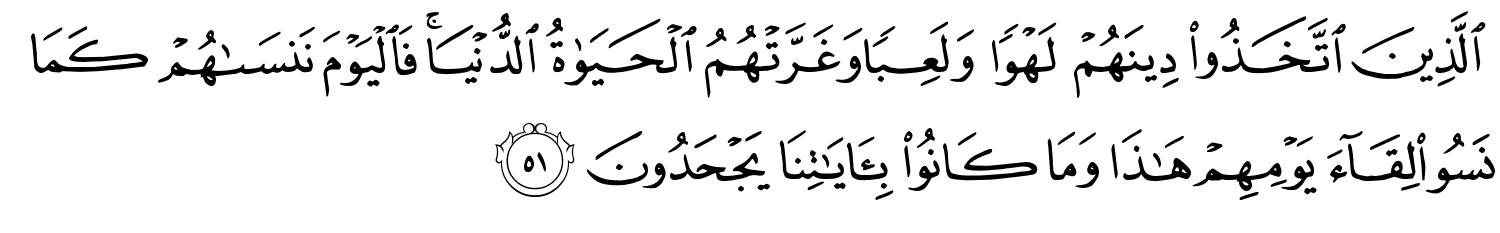 ٱلَّذِينَ ٱتَّخَذُوا۟ دِينَهُمْ لَهْوًا وَلَعِبًا وَغَرَّتْهُمُ ٱلْحَيَوٰةُ ٱلدُّنْيَا ۚ فَٱلْيَوْمَ نَنسَىٰهُمْ كَمَا
نَسُوا۟ لِقَآءَ يَوْمِهِمْ هَـٰذَا وَمَا كَانُوا۟ بِـَٔايَـٰتِنَا يَجْحَدُونَ ٥١